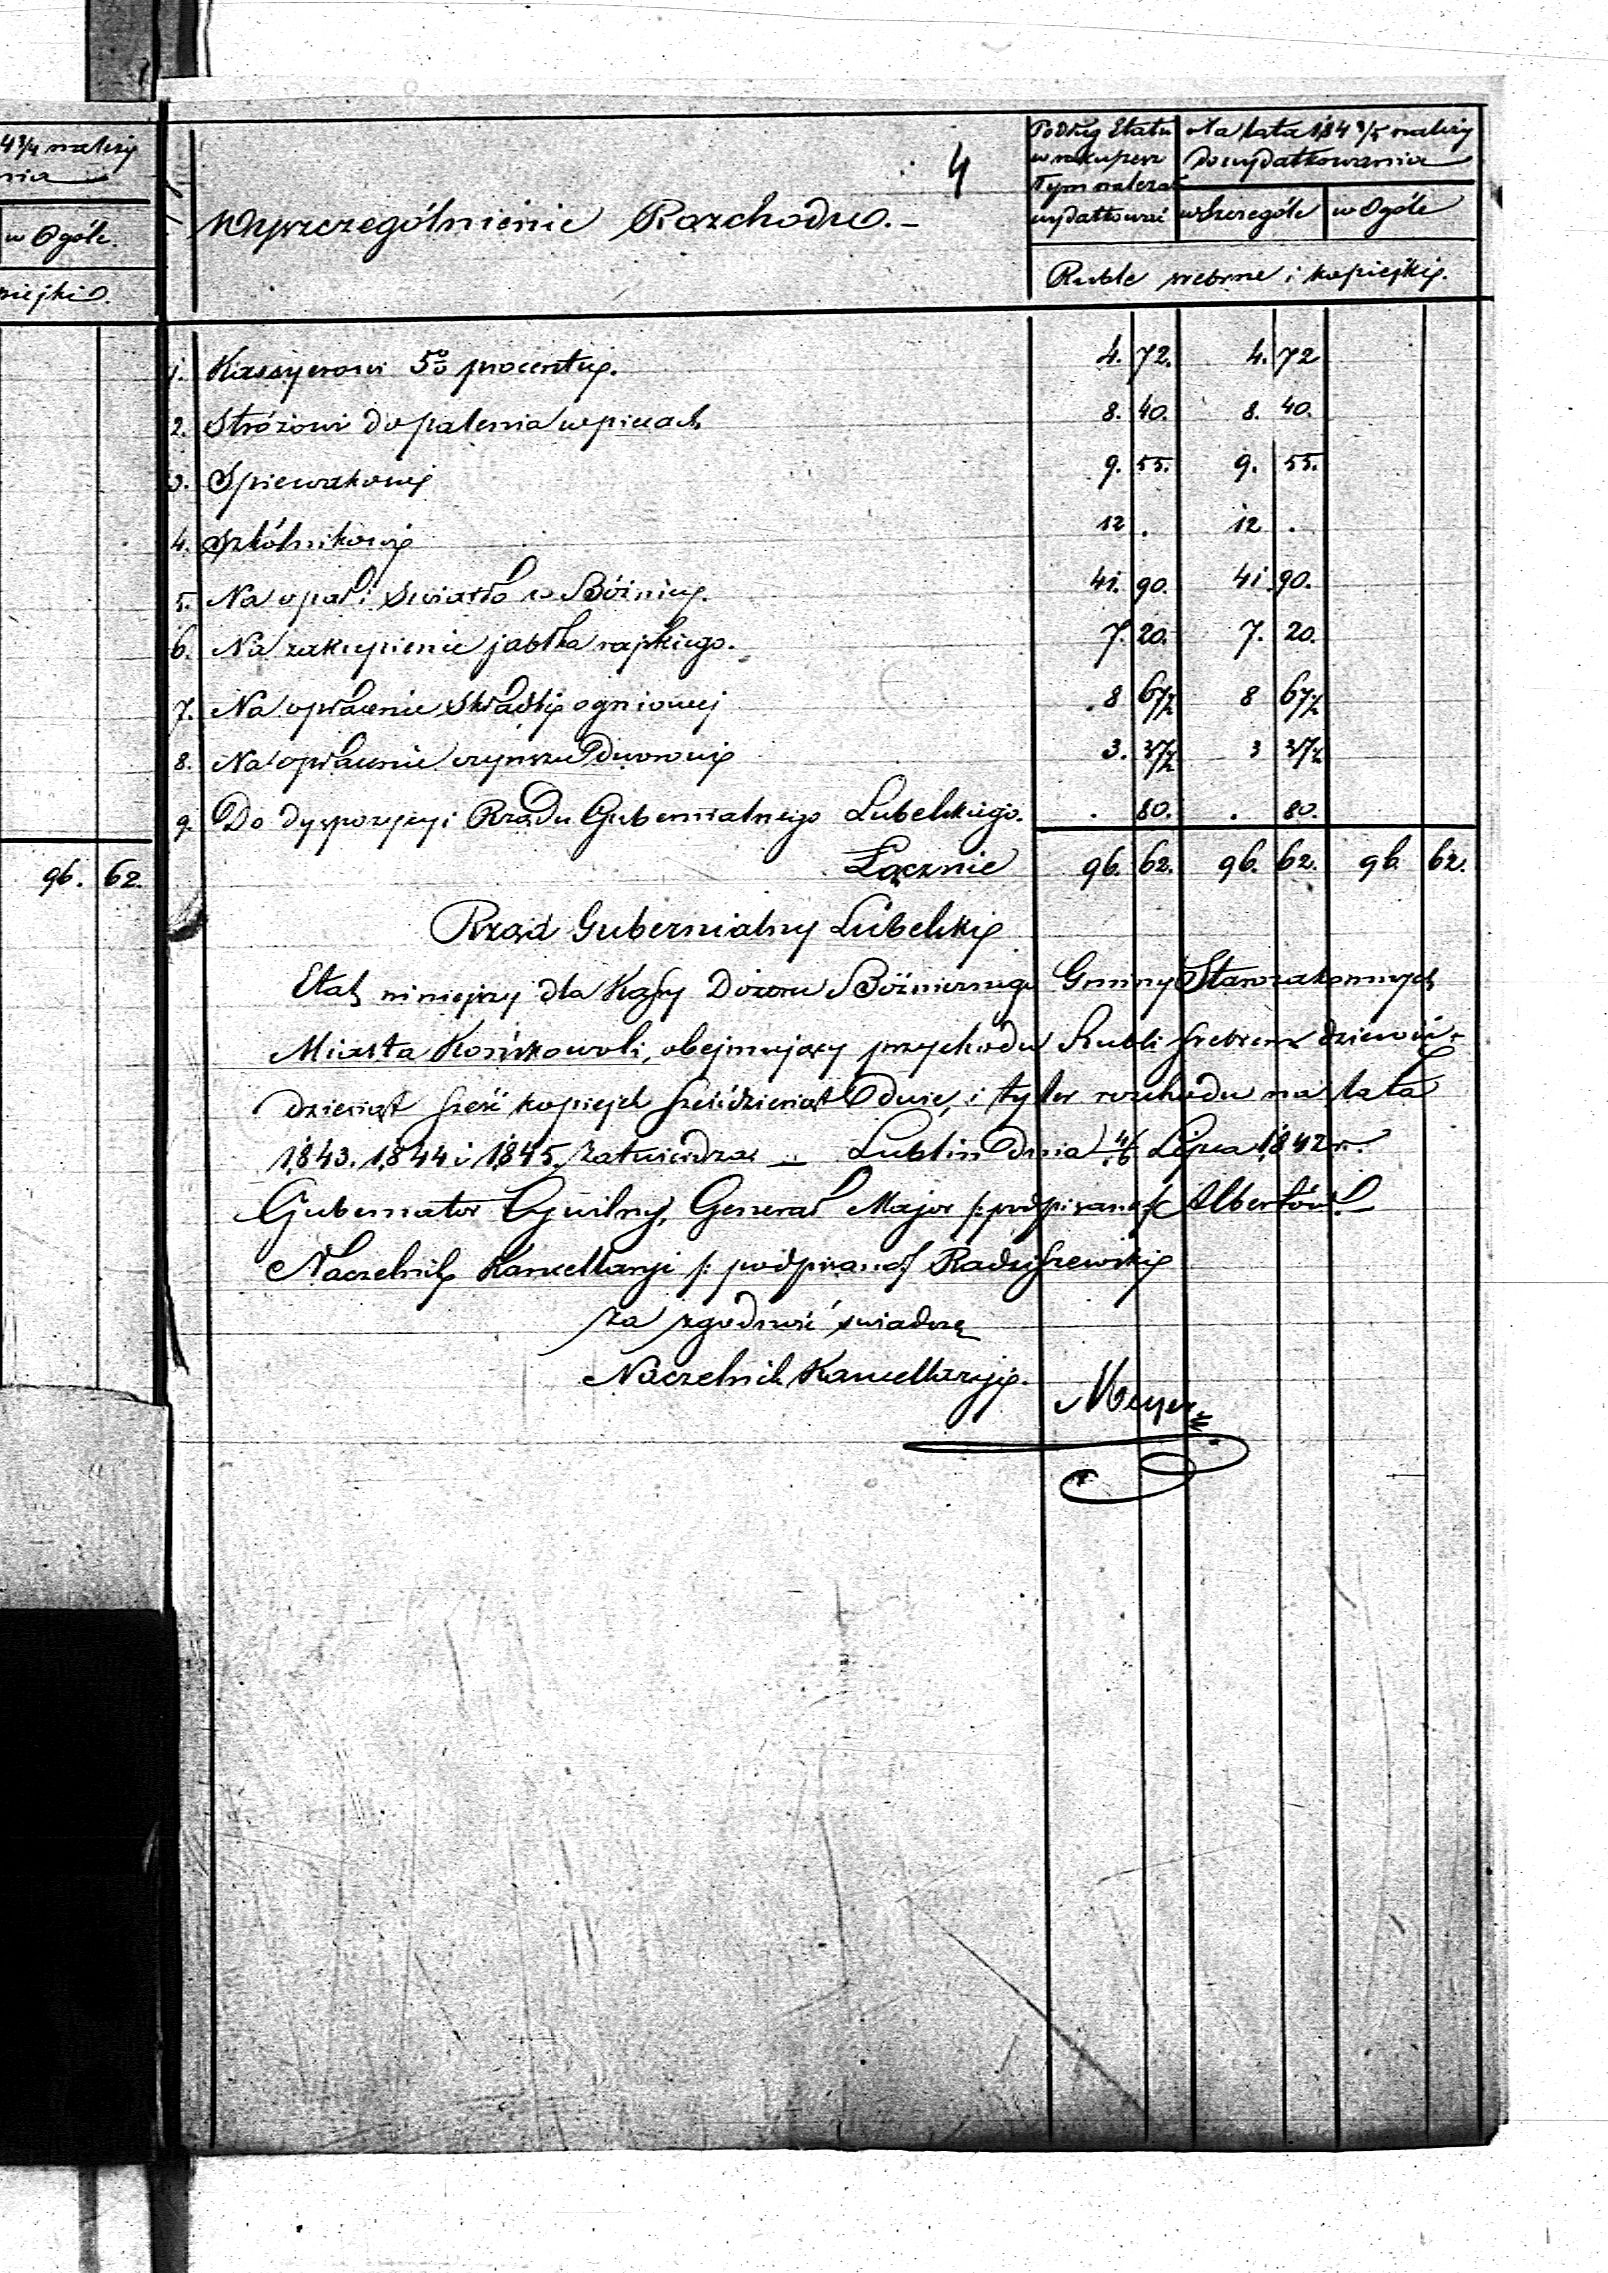 4¾ należy
nia
w Ogóle.
piejki.
96. 62.
4
Wyszczególnienie Rozchodu.-
Podług Etatu
w
tym należało
wydatkować
Na lata 184 3/5 należy
do wydatkowania
w Szczególe
w Ogóle
Ruble srebrne i kopiejki.
1. Kassyerowi 5% procentu. 4. 72. 4. 72
2. Stróżowi do palenia w piecach 8. 40. 8. 40.
3. Spiewakowi 9. 55. 9. 55.
4. Szkólnikowi 12 . 12 .
5. Na opał i swiatło w Bóżnicy. 41. 90. 41. 90.
6. Na zakupienie jabłka rajskiego. 7. 20. 7. 20.
7. Na opłacenie składki ogniowej 8 67½ 8 67½
8. Na opłacenie czynszu Dworowi 3. 37½ 3 37½
9. Do dyspozycyi Rządu Gubernialnego Lubelskiego. . 80. . 80.
Łącznie 96. 62. 96. 62. 96. 62.
Rząd Gubernialny Lubelski
Etat niniejszy dla Kassy Dozoru Bóżniczego Gminy Starozakonnych
Miasta Końskowoli, obejmujący przychodu Rubli srebrem dziewięć-
dziesiąt sześć kopiejek sześćdziesiąt dwie, i tyleż rozchodu na lata
1843. 1844 i 1845. zatwierdza — Lublin dnia 4/16 Lipca 1842 r.
Gubernator Cywilny, Generał Major /: podpisano :/ Albertów
Naczelnik Kancellaryi /: podpisano :/ Radziszewski
Za zgodność swiadczę
Naczelnik Kancellaryi.
Meyer